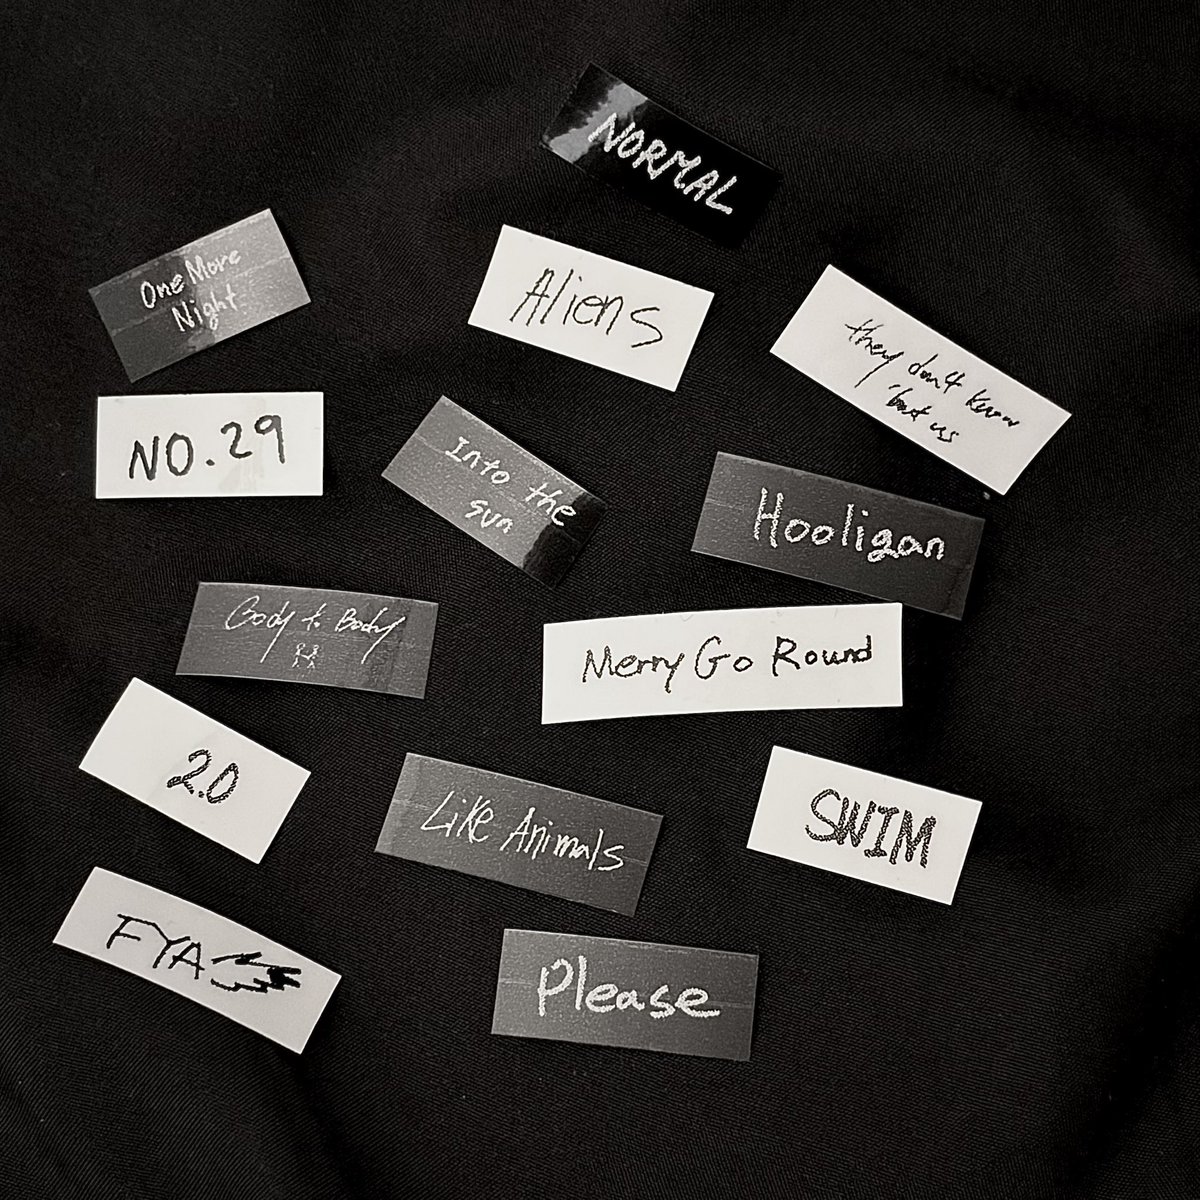 NORMAL
One More
Night
Aliens
they don't know
'bout us
NO.29
Into the
sun
Hooligan
Body to Body
Merry Go Round
2.0
Like Animals
SWIM
FYA
Please